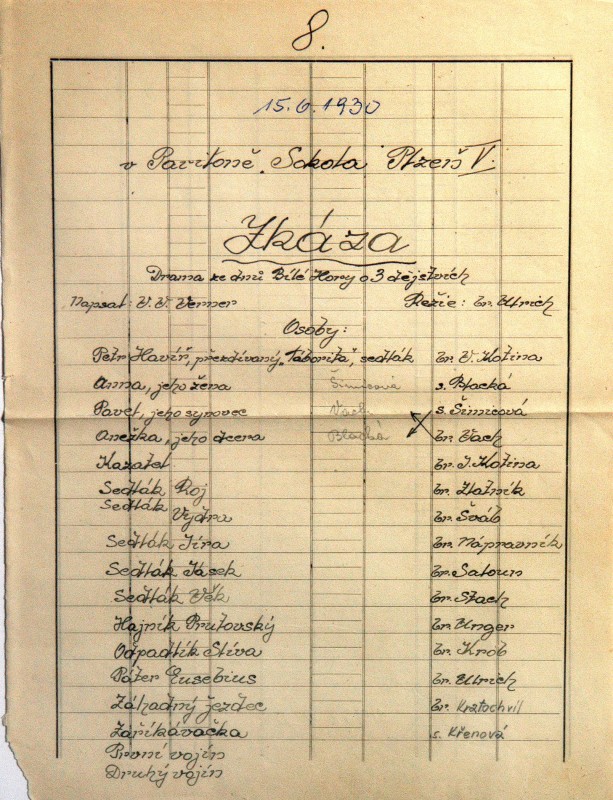 8.
15.6.1930
v Paviloně „Sokola" Plzeň V.
Zkáza
Drama ze dnů Bílé Hory o 3 dějstvích
Napsal: V. V. Verner Režie: br. Ulrich
Osoby:
Petr Havíř, přezdívaný „Táborita", sedlák br. V. Kotina
Anna, jeho žena Šimicová s. Blacká
Pavel, jeho synovec Vach. s. Šimicová
Anežka, jeho dcera Blacká br. Vach
Kazatel br. J. Kotina
Sedlák Roj br. Zlatník
Sedlák Vydra br. Šváb
Sedlák Jíra br. Nápravník
Sedlák Jásek br. Satoun
Sedlák Věk br. Stach
Hajník Prutovský br. Unger
Odpadlík Slíva br. Krob
Páter Eusebius br. Ulrich
Záhadný jezdec br. Kratochvil
Zaříkávačka s. Křenová
První vojín
Druhý vojín